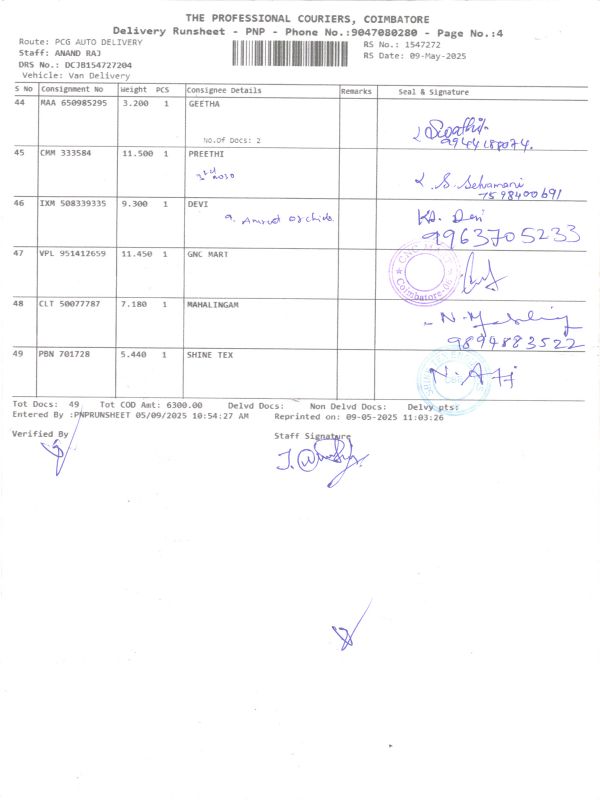 THE PROFESSIONAL COURIERS, COIMBATORE
Delivery Runsheet - PNP - Phone No.:9047080280 - Page No.:4
Route: PCG AUTO DELIVERY RS No.: 1547272
Staff: ANAND RAJ RS Date: 09-May-2025
DRS No.: DCJB154727204
Vehicle: Van Delivery
S No Consignment No Weight PCS Consignee Details Remarks Seal & Signature
44 MAA 650985295 3.200 1 GEETHA
No.Of Docs: 2
Swathi
9944188074.
45 CMM 333584 11.500 1 PREETHI
S. Selvamani
7598400691
46 IXM 508339335 9.300 1 DEVI
Devi
9963705233
47 VPL 951412659 11.450 1 GNC MART
GNC MART
Coimbatore-06
48 CLT 50077787 7.180 1 MAHALINGAM
9894883522
49 PBN 701728 5.440 1 SHINE TEX
Tot Docs: 49 Tot COD Amt: 6300.00 Delvd Docs: Non Delvd Docs: Delvy pts:
Entered By :PNPRUNSHEET 05/09/2025 10:54:27 AM Reprinted on: 09-05-2025 11:03:26
Verified By Staff Signature